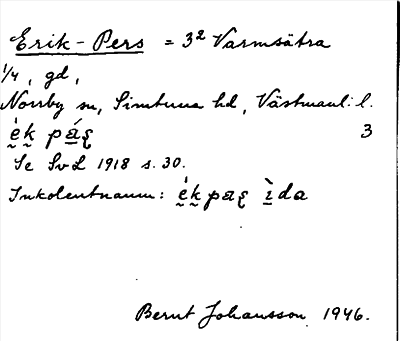 Erik-Pers = 3² Varmsätra
1/4, gd,
Norrby sn, Simtuna hd, Västmanl. l.
è̤k̤ pá̱ʂ 3
Se SvL 1918 s. 30.
Inkolentnamn: è̤k̤paʂ ì̱da
Bernt Johansson 1946.